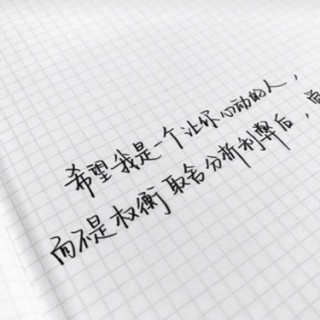 希望我是一个让你心动的人，
而不是权衡取舍分析利弊后，